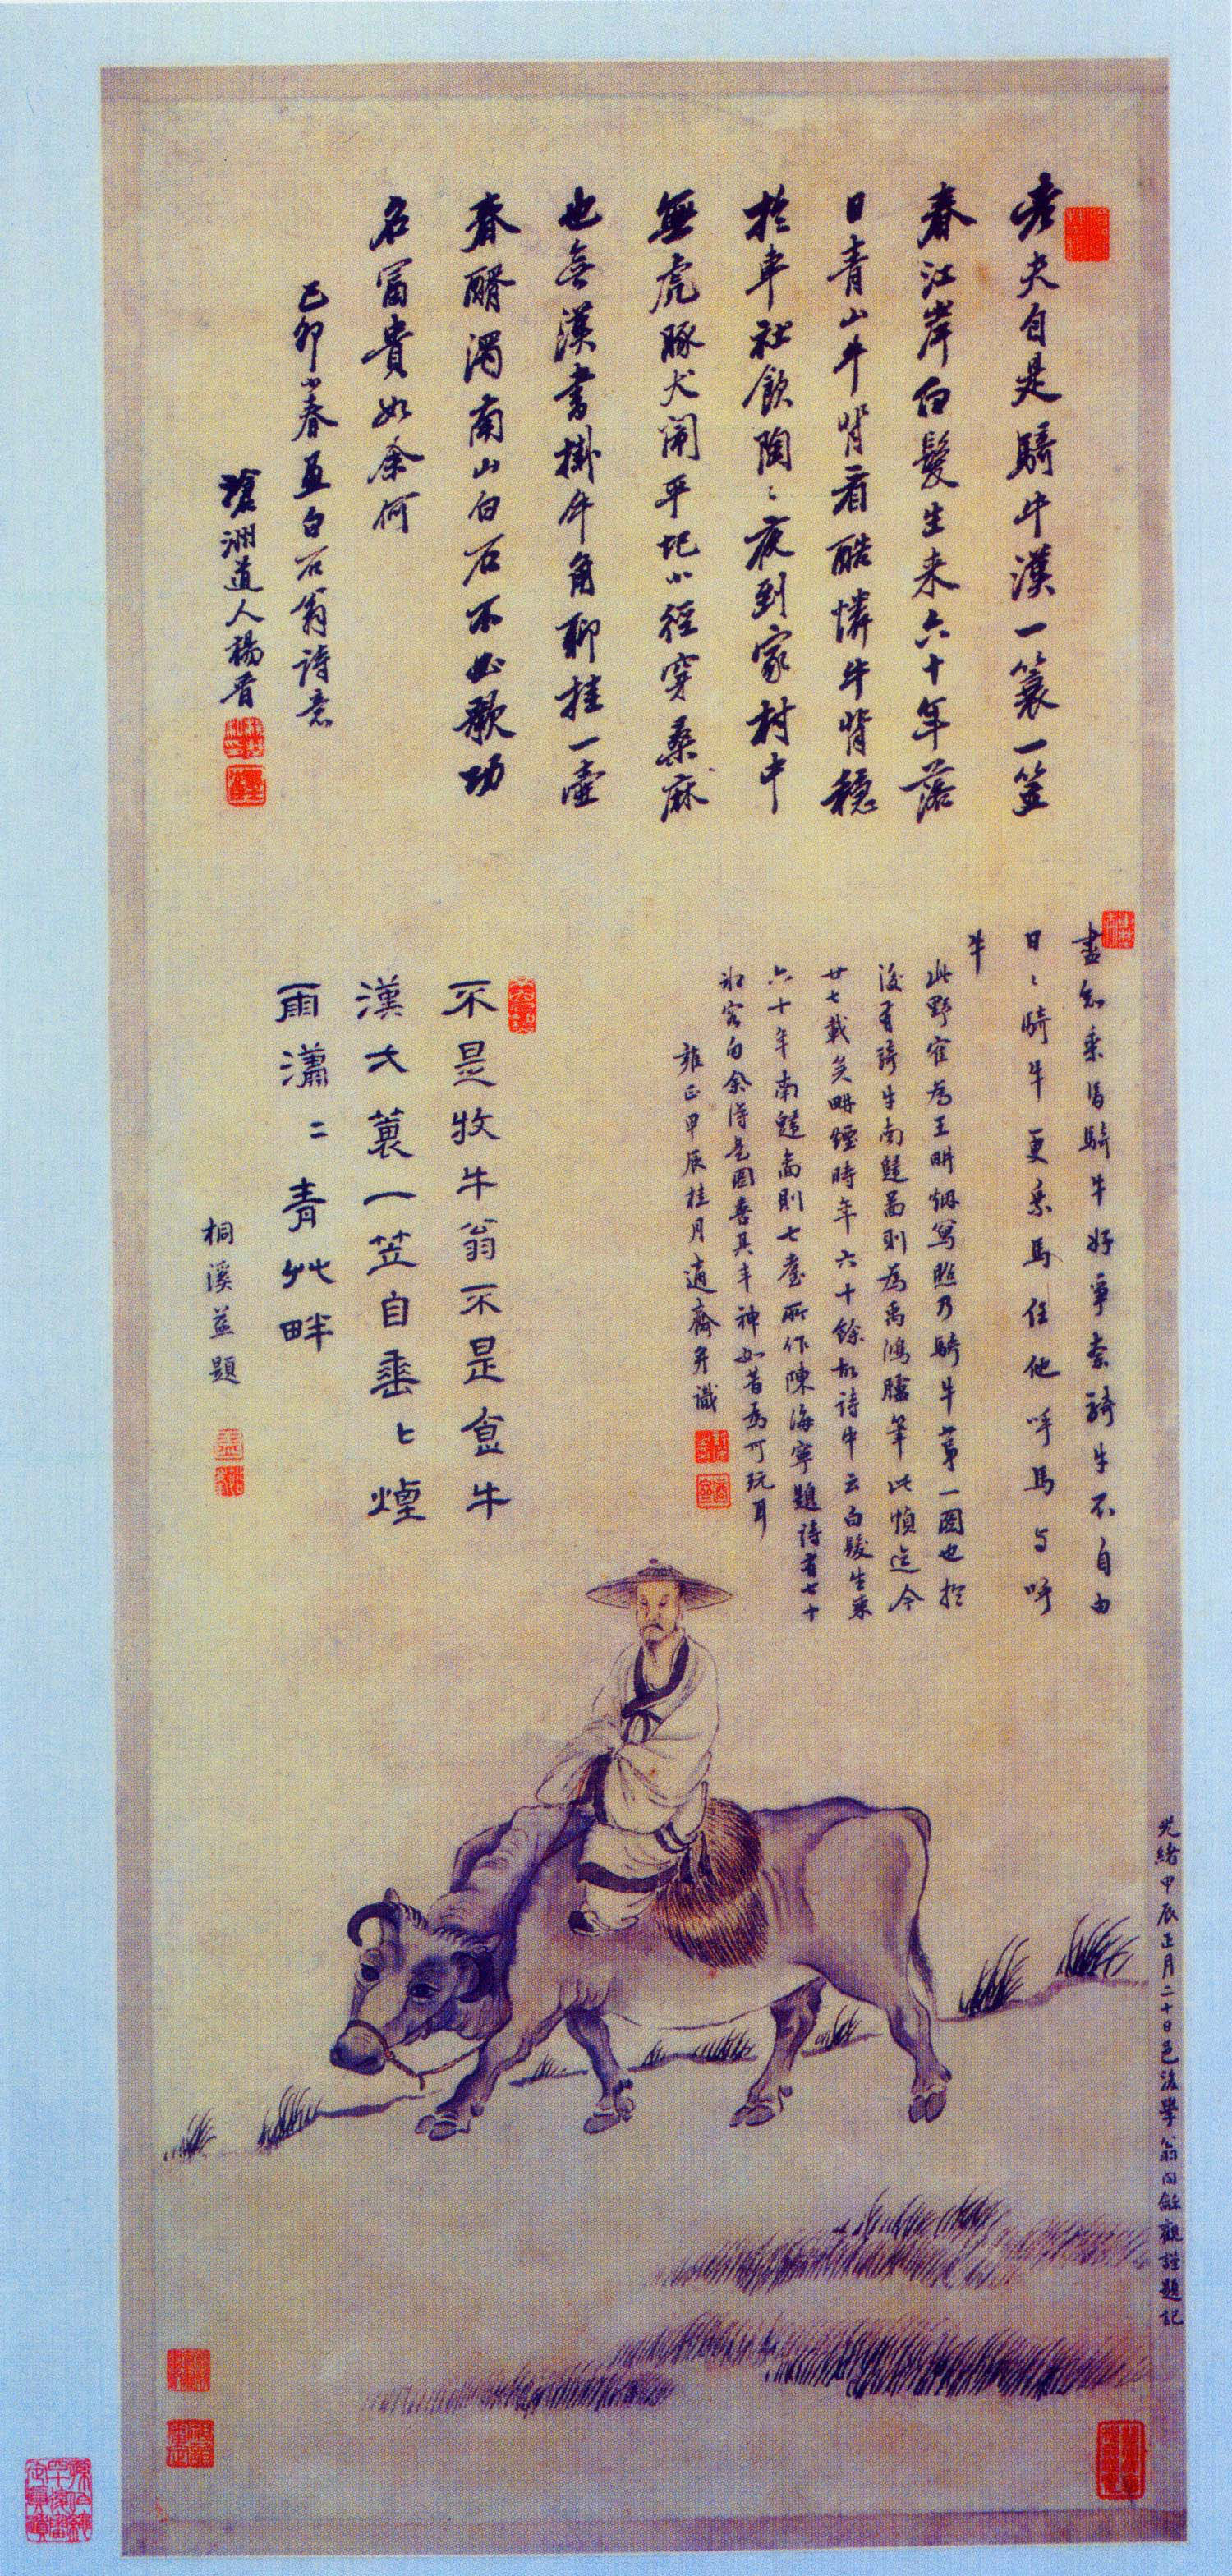 老夫自是騎牛漢一蓑一笠
春江岸白髮生来六十年落
日青山牛背看酷憐牛背穩
於車社飲陶〻夜到家村中
無虎豚犬鬧平圯小徑穿桑麻
也無漢書掛牛角聊挂一壺
春醑濁南山白石不必歌功
名富貴如余何
己卯小春畫白石翁詩意
滄洲道人楊晉
盡知乘馬騎牛好爭奈騎牛不自由
日〻騎牛更乘馬任他呼馬与呼
牛
此野隺為王畊烟寫照乃騎牛苐一圖也於
後有騎牛南歸啚則為禹鴻臚筆此幀迄今
廿七載矣畊煙時年六十餘故詩中云白髮生来
六十年南歸啚則七耋所作陳海寧題詩者七十
也客白余得是圖喜其丰神如昔為可玩耳
雍正甲辰桂月逍齋弁識
不是牧牛翁不是食牛
漢大蓑一笠自垂〻煙
雨瀟〻青艸畔
桐溪益題
光緒甲辰正月二十日邑後學翁同龢觀謹題記